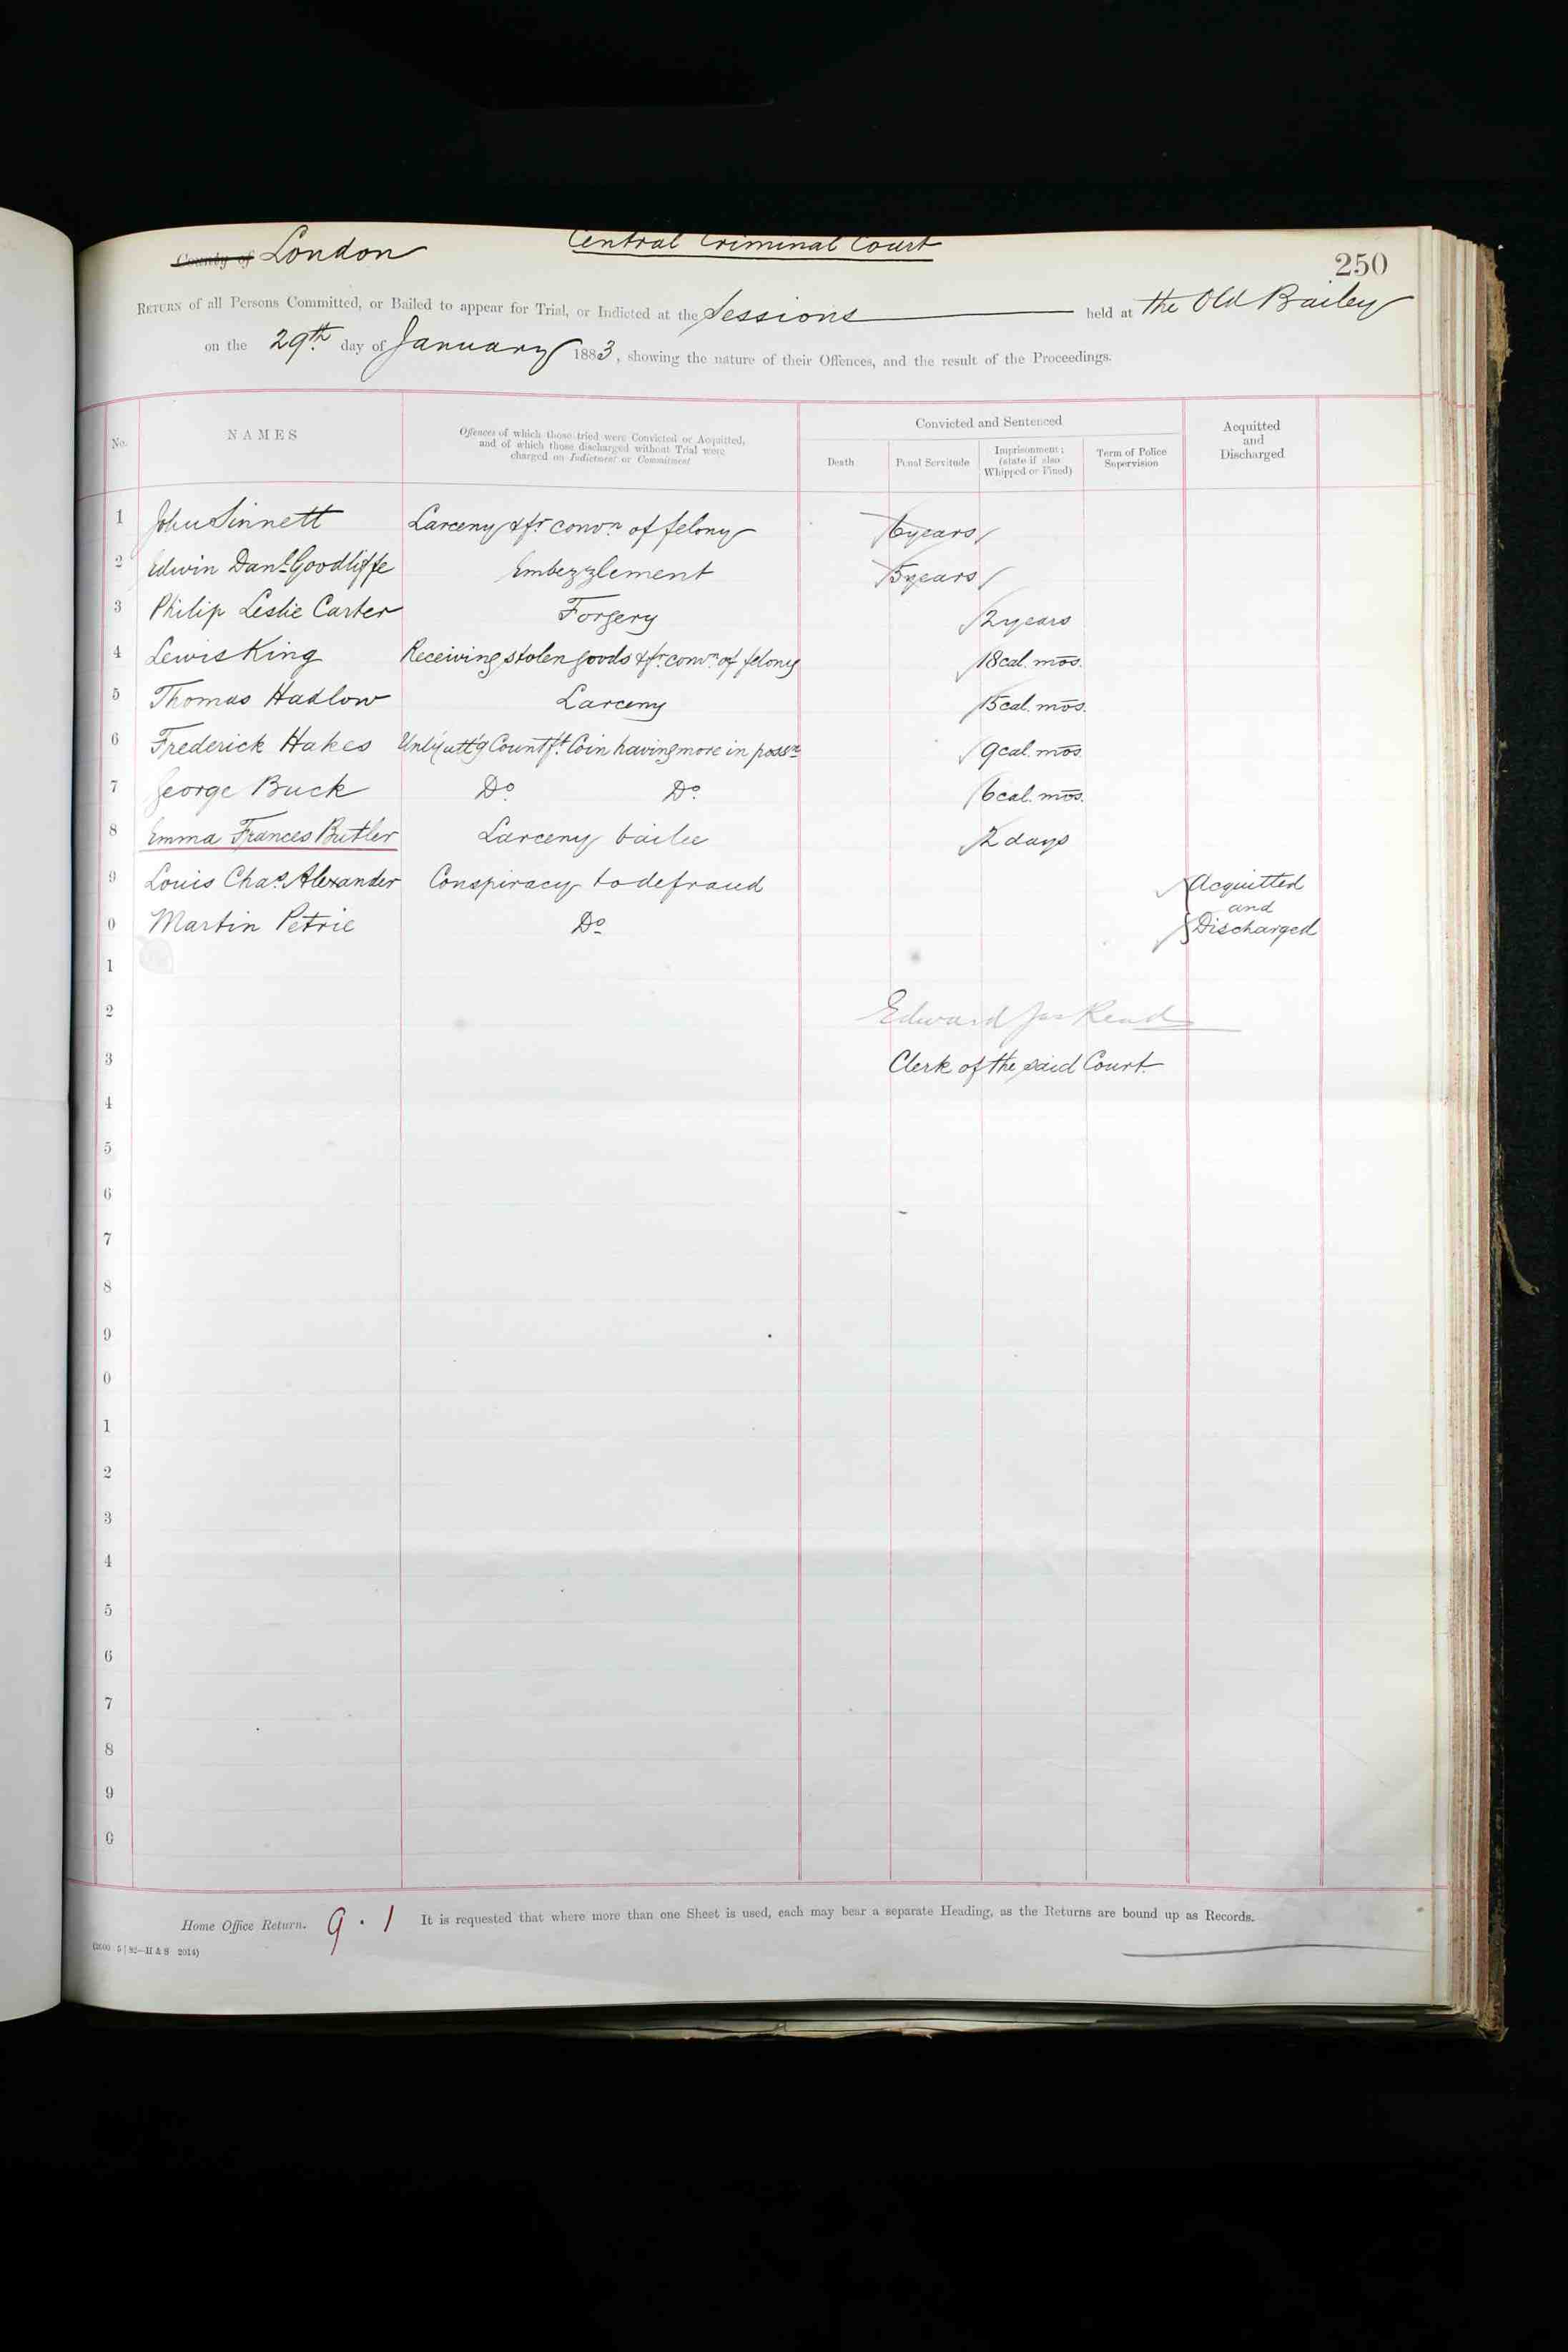 County of London Central Criminal Court
250
RETURN of all Persons Committed, or Bailed to appear for Trial, or Indicted at the Sessions held at the Old Bailey
on the 29th day of January 1883, showing the nature of their Offences, and the result of the Proceedings.
No. NAMES Offences of which those tried were Convicted or Acquitted, and of which those discharged without Trial were charged on Indictment or Commitment Convicted and Sentenced Acquitted and Discharged
Death Penal Servitude Imprisonment; (state if also Whipped or Fined) Term of Police Supervision
1 John Sinnett Larceny & fr convn of felony 6 years
2 Edwin Danl Goodliffe Embezzlement 5 years
3 Philip Leslie Carter Forgery 2 years
4 Lewis King Receiving stolen goods & fr. convn of felony 18 cal. mos.
5 Thomas Hadlow Larceny 15 cal. mos.
6 Frederick Hakes Unly utt'g Countft Coin having more in possn 9 cal. mos.
7 George Buck Do Do 6 cal. mos.
8 Emma Frances Butler Larceny bailee 2 days
9 Louis Chas. Alexander Conspiracy to defraud Acquitted
and
0 Martin Petrie Do Discharged
1
2 Edward Jas Read
3 Clerk of the said Court
4
5
6
7
8
9
0
1
2
3
4
5
6
7
8
9
0
Home Office Return. 9.1 It is requested that where more than one Sheet is used, each may bear a separate Heading, as the Returns are bound up as Records.
5 | 82—H & S 2014)